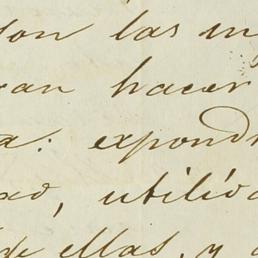 son las in
ran hacer
a: expond
xo, utilid
de ellas, y